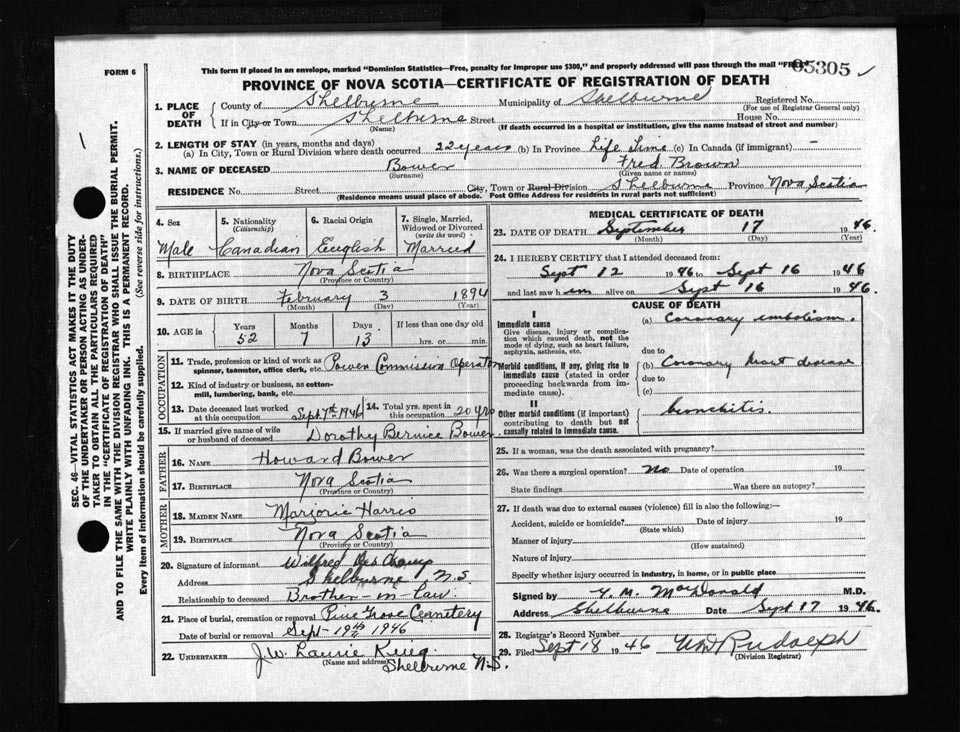 This form if placed in an envelope, marked "Dominion Statistics—Free, penalty for improper use $300," and properly addressed will pass through the mail "FREE"
FORM 6
05305
PROVINCE OF NOVA SCOTIA—CERTIFICATE OF REGISTRATION OF DEATH
1. PLACE OF DEATH County of Shelburne Municipality of Shelburne Registered No.
(For use of Registrar General only)
If in City or Town Shelburne Street House No.
(Name) (If death occurred in a hospital or institution, give the name instead of street and number)
2. LENGTH OF STAY (in years, months and days)
(a) In City, Town or Rural Division where death occurred 22 years (b) In Province Life Time (c) In Canada (if immigrant) —
3. NAME OF DECEASED Bower Fred Brown
(Surname) (Given name or names)
RESIDENCE No. Street City, Town or Rural Division Shelburne Province Nova Scotia
(Residence means usual place of abode. Post Office Address for residents in rural parts not sufficient)
4. Sex 5. Nationality (Citizenship) 6. Racial Origin 7. Single, Married, Widowed or Divorced (write the word)
Male Canadian English Married
8. BIRTHPLACE Nova Scotia
(Province or Country)
9. DATE OF BIRTH February 3 1894
(Month) (Day) (Year)
10. AGE in Years Months Days If less than one day old
52 7 13 hrs. or min.
OCCUPATION
11. Trade, profession or kind of work as spinner, teamster, office clerk, etc. Power Commission Operator
12. Kind of industry or business, as cotton-mill, lumbering, bank, etc.
13. Date deceased last worked at this occupation Sept. 7th 1946 14. Total yrs. spent in this occupation 20 yrs
15. If married give name of wife or husband of deceased Dorothy Bernice Bower
FATHER
16. NAME Howard Bower
17. BIRTHPLACE Nova Scotia
(Province or Country)
MOTHER
18. MAIDEN NAME Marjorie Harris
19. BIRTHPLACE Nova Scotia
(Province or Country)
20. Signature of informant Wilfred Des Champ
Address Shelburne N.S.
Relationship to deceased Brother-in-Law
21. Place of burial, cremation or removal Pine Grove Cemetery
Date of burial or removal Sept- 19th 1946
22. UNDERTAKER J.W. Laurie King
(Name and address) Shelburne N.S.
MEDICAL CERTIFICATE OF DEATH
23. DATE OF DEATH September 17 1946.
(Month) (Day) (Year)
24. I HEREBY CERTIFY that I attended deceased from:
Sept 12 1946 to Sept 16 1946
and last saw him alive on Sept 16 1946.
CAUSE OF DEATH
I
Immediate cause (a) Coronary embolism.
Give disease, injury or complication which caused death, not the mode of dying, such as heart failure, asphyxia, asthenia, etc.
due to
Morbid conditions, if any, giving rise to immediate cause (stated in order proceeding backwards from immediate cause). (b) Coronary heart disease
due to
(c)
II
Other morbid conditions (if important) contributing to death but not causally related to immediate cause. bronchitis.
25. If a woman, was the death associated with pregnancy?
26. Was there a surgical operation? No Date of operation 19
State findings Was there an autopsy?
27. If death was due to external causes (violence) fill in also the following:—
Accident, suicide or homicide? Date of injury 19
(State which)
Manner of injury
(How sustained)
Nature of injury
Specify whether injury occurred in industry, in home, or in public place
Signed by MacDonald M.D.
Address Shelburne Date Sept 17 1946.
28. Registrar's Record Number
29. Filed Sept 18 1946 Rudolph
(Division Registrar)
SEC. 46—VITAL STATISTICS ACT MAKES IT THE DUTY
OF THE UNDERTAKER OR PERSON ACTING AS UNDER-
TAKER TO OBTAIN ALL THE PARTICULARS REQUIRED
IN THE "CERTIFICATE OF REGISTRATION OF DEATH"
AND TO FILE THE SAME WITH THE DIVISION REGISTRAR WHO SHALL ISSUE THE BURIAL PERMIT.
WRITE PLAINLY WITH UNFADING INK. THIS IS A PERMANENT RECORD.
Every item of information should be carefully supplied. (See reverse side for instructions.)